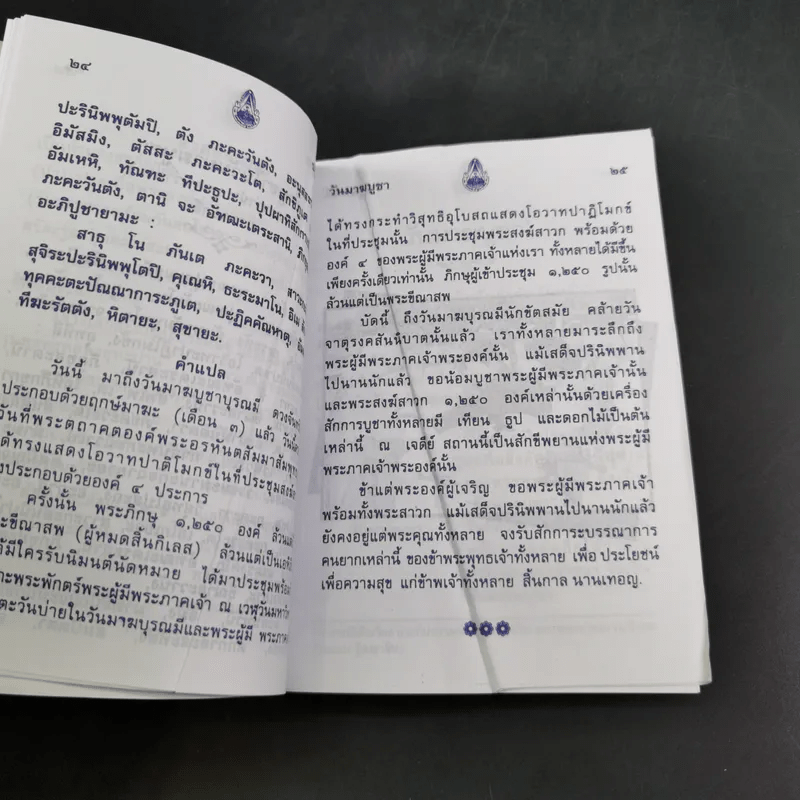 ๒๔
ปะรินิพพุตัมปิ, ตัง ภะคะวันตัง,
อิมัสมิง, ตัสสะ ภะคะวะโต,
อัมเหหิ, ทัณฑะ ทีปะธูปะ,
ภะคะวันตัง, ตานิ จะ อัฑฒะเตระสานิ,
อะภิปูชายามะ :
สาธุ โน ภันเต ภะคะวา,
สุจิระปะรินิพพุโตปิ, คุเณหิ, ธะระมาโน, อิเม
ทุคคะตะปัณณาการะภูเต, ปะฏิคคัณหาตุ,
ทีฆะรัตตัง, หิตายะ, สุขายะ.
คำแปล
วันนี้ มาถึงวันมาฆบูชาบุรณมี
ประกอบด้วยฤกษ์มาฆะ (เดือน ๓) แล้ว
วันที่พระตถาคตองค์พระอรหันตสัมมาสัมพุทธ
ได้ทรงแสดงโอวาทปาติโมกข์ในที่ประชุมสงฆ์
ประกอบด้วยองค์ ๔ ประการ
ครั้งนั้น พระภิกษุ ๑,๒๕๐ องค์
(ผู้หมดสิ้นกิเลส) ล้วนแต่เป็น
มีใครรับนิมนต์นัดหมาย ได้มาประชุมพร้อม
พระพักตร์พระผู้มีพระภาคเจ้า ณ เวฬุวัน
ตะวันบ่ายในวันมาฆบุรณมีและพระผู้มี
วันมาฆบูชา ๒๕
ได้ทรงกระทำวิสุทธิอุโบสถแสดงโอวาทปาฏิโมกข์
ในที่ประชุมนั้น การประชุมพระสงฆ์สาวก พร้อมด้วย
องค์ ๔ ของพระผู้มีพระภาคเจ้าแห่งเรา ทั้งหลายได้มีขึ้น
เพียงครั้งเดียวเท่านั้น ภิกษุผู้เข้าประชุม ๑,๒๕๐ รูปนั้น
ล้วนแต่เป็นพระขีณาสพ
บัดนี้ ถึงวันมาฆบุรณมีนักขัตสมัย คล้ายวัน
จาตุรงคสันนิบาตนั้นแล้ว เราทั้งหลายมาระลึกถึง
พระผู้มีพระภาคเจ้าพระองค์นั้น แม้เสด็จปรินิพพาน
ไปนานนักแล้ว ขอน้อมบูชาพระผู้มีพระภาคเจ้านั้น
และพระสงฆ์สาวก ๑,๒๕๐ องค์เหล่านั้นด้วยเครื่อง
สักการบูชาทั้งหลายมี เทียน ธูป และดอกไม้เป็นต้น
เหล่านี้ ณ เจดีย์ สถานนี้เป็นสักขีพยานแห่งพระผู้มี
พระภาคเจ้าพระองค์นั้น
ข้าแต่พระองค์ผู้เจริญ ขอพระผู้มีพระภาคเจ้า
พร้อมทั้งพระสาวก แม้เสด็จปรินิพพานไปนานนักแล้ว
ยังคงอยู่แต่พระคุณทั้งหลาย จงรับสักการะบรรณาการ
คนยากเหล่านี้ ของข้าพระพุทธเจ้าทั้งหลาย เพื่อ ประโยชน์
เพื่อความสุข แก่ข้าพเจ้าทั้งหลาย สิ้นกาล นานเทอญ.